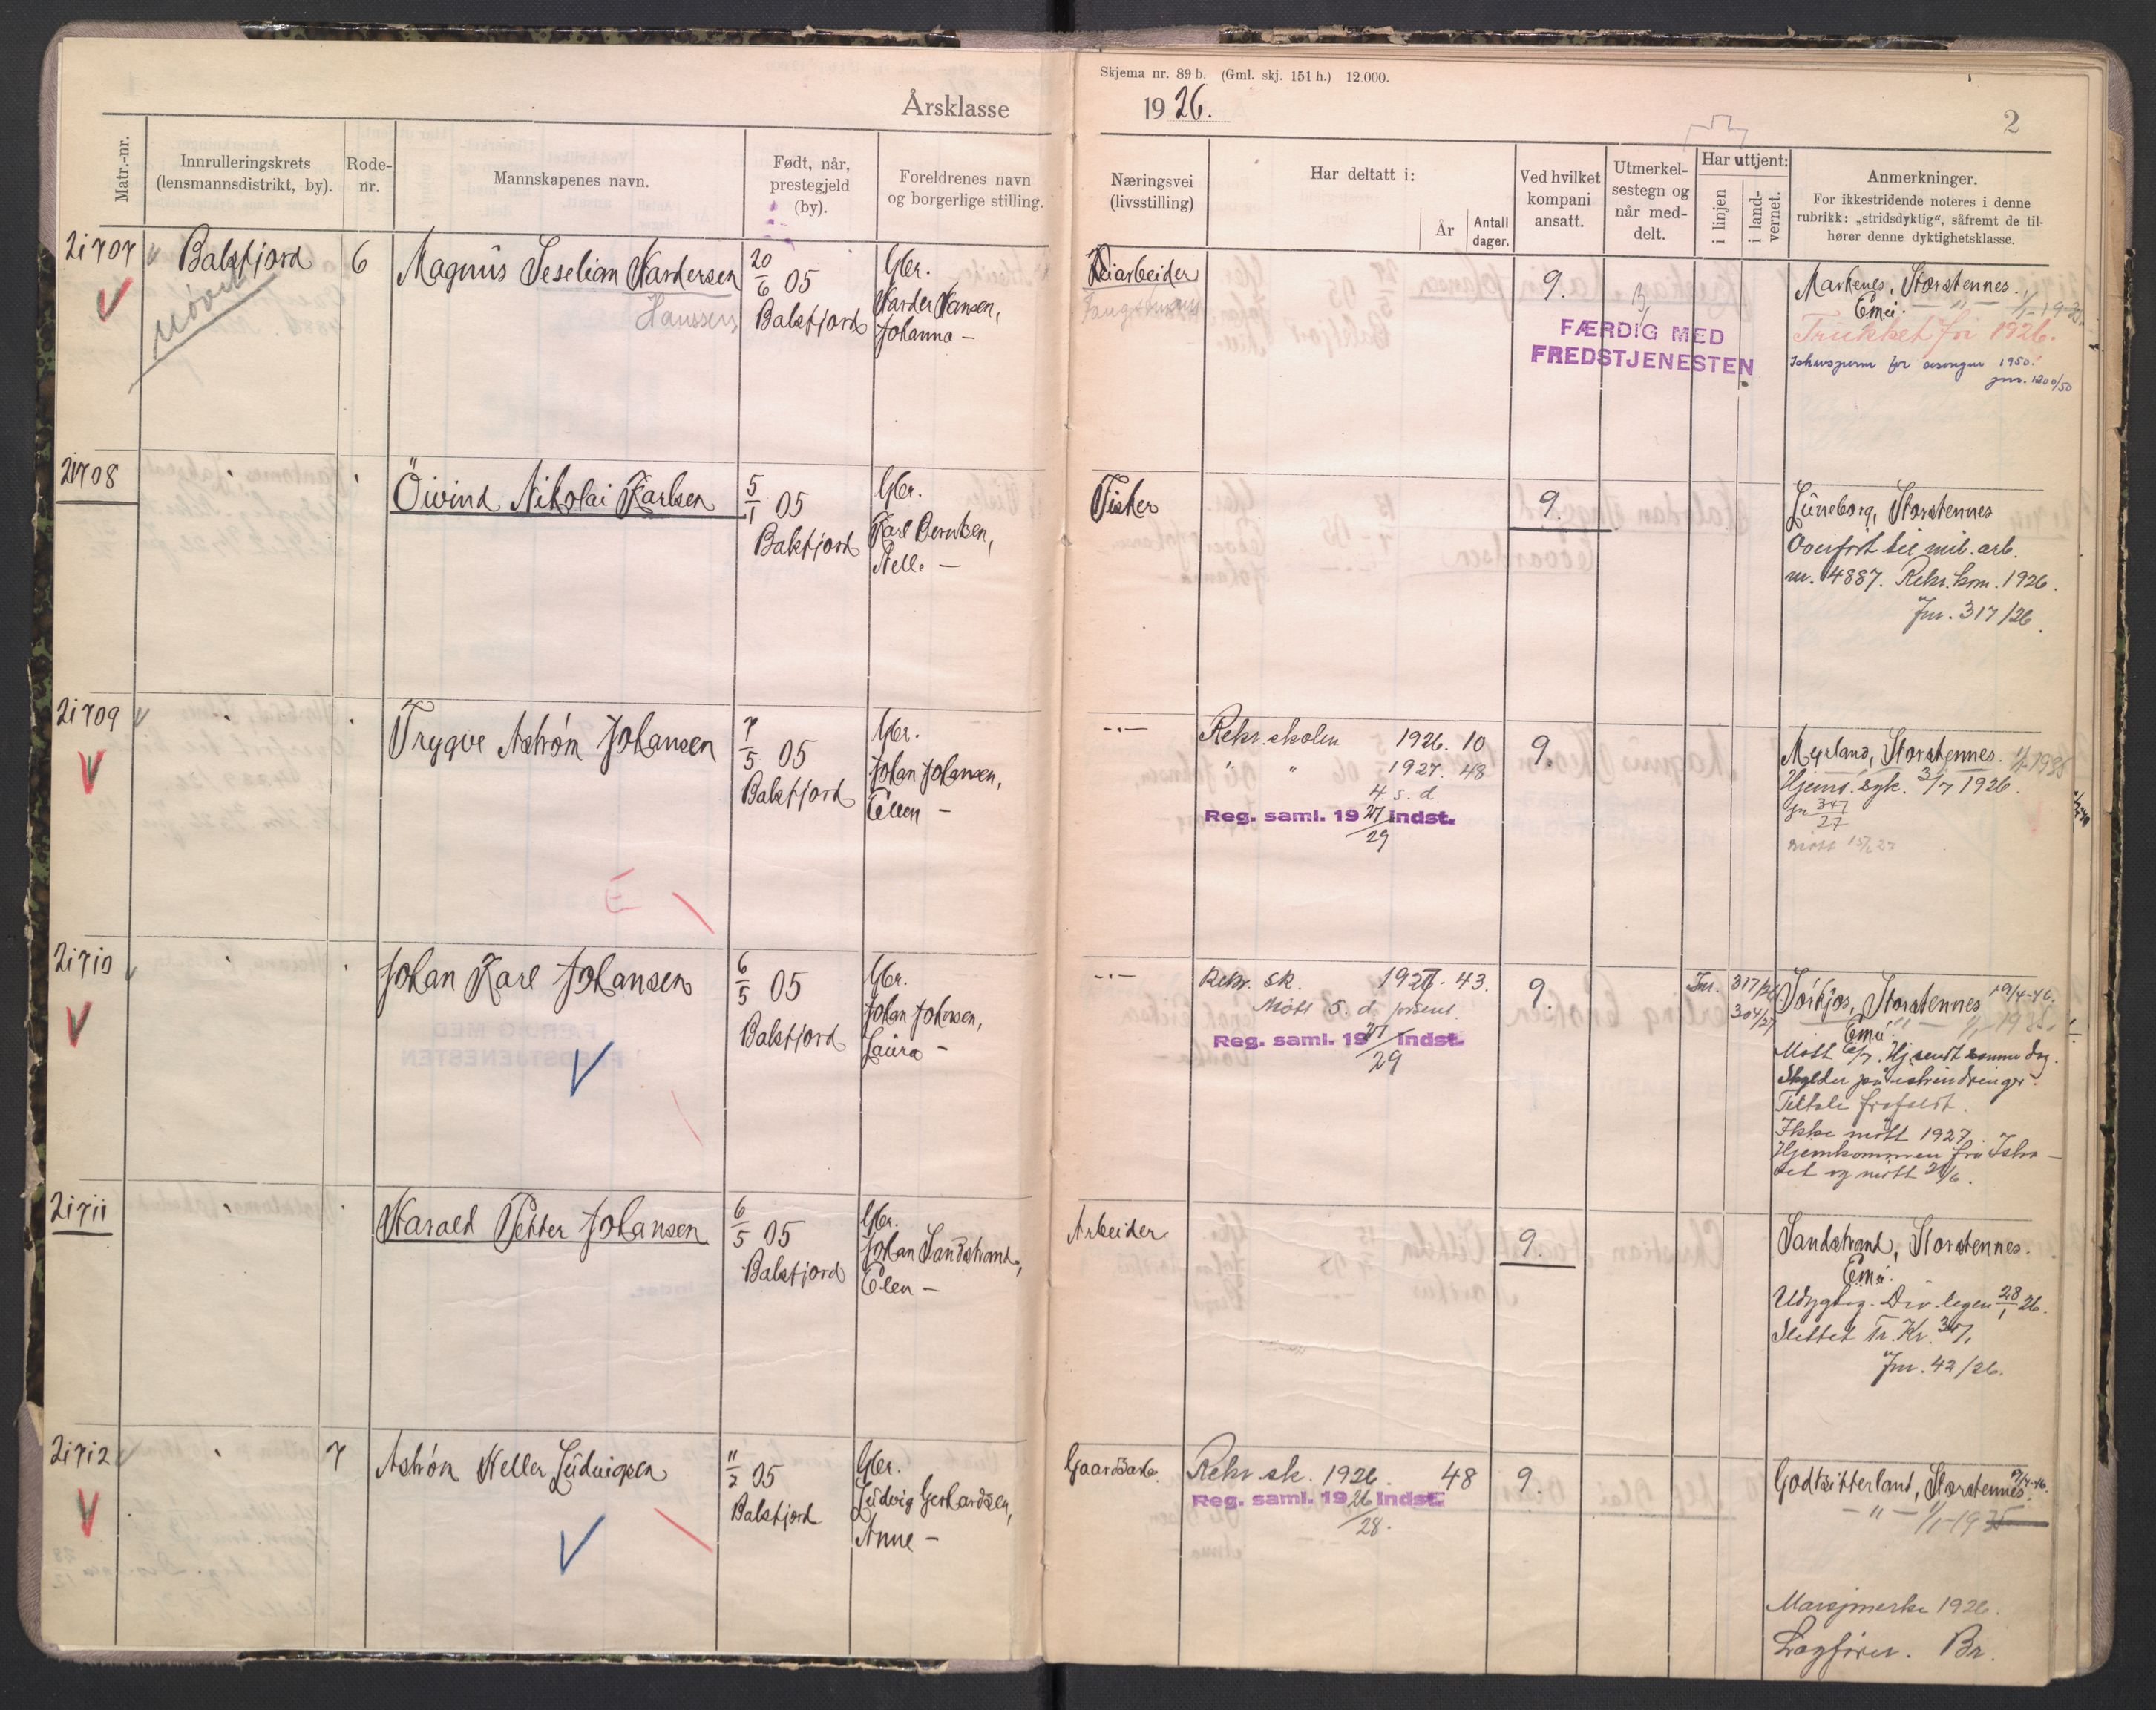 Årsklasse
Skjema nr. 89 b. (Gml. skj. 151 h.) 12.000.
1926.
2
Matr.-nr.
Innrulleringskrets
(lensmannsdistrikt, by).
Rode-
nr.
Mannskapenes navn.
Født, når,
prestegjeld
(by).
Foreldrenes navn
og borgerlige stilling.
Næringsvei
(livsstilling)
Har deltatt i:
År
Antall
dager.
Ved hvilket
kompani
ansatt.
Utmerkel-
sestegn og
når med-
delt.
Har uttjent:
i linjen
i land-
vernet.
Anmerkninger.
For ikkestridende noteres i denne
rubrikk: „stridsdyktig“, såfremt de til-
hører denne dyktighetsklasse.
21707
Balsfjord
6
Magnus Seselian Hardersen
Hanssen
20/6 05
Balsfjord
Gbr.
Harder Hansen,
Johanna —
Veiarbeider
9.
FÆRDIG MED
FREDSTJENESTEN
Markenes, Storstennes.
Emü. " 1/1-19
Trukket for 1926.
for sesongen 1950.
jnr. 1200/50
21708
Öivind Nikolai Karlsen
5/1 05
Balsfjord
Gbr.
Karl Berntsen,
Nelle —
Fisker
9.
Lüneborg, Storstennes
Overført til mil. arb.
nr. 4887. Rekr. kom. 1926.
Jnr. 317/26.
21709
Trygve Astrón Johansen
7/5 05
Balsfjord
Gbr.
Johan Johansen,
Ellen —
E
-"-
Rekr. skolen 1926. 10
" " 1927. 48
4. s. d.
Reg. saml. 1927 indst.
29
9.
Myrland, Storstennes. 1/1-1935
Hjems. syk. 3/7 1926.
Jnr 347/27
møtt 15/6 27
21710
Johan Karl Johansen
6/5 05
Balsfjord
Gbr.
Johan Johnsen,
Laura —
-"-
Rekr. sk. 1927. 43.
Møtt 5. d.
Reg. saml. 1927 indst.
29
9.
Jnr. 317/26
304/27
Storstennes 19/4-46.
Emü. " — 1/1-1935.
Møtt 6/7. Hj. sendt samme dag.
Tiltale frafaldt.
Ikke møtt 1927.
Hjemkommen fra Isha-
vet og møtt 21/6.
21711
Harald Petter Johansen
6/5 05
Balsfjord
Gbr.
Johan Sandstrand,
Elen —
Arbeider
9.
Sandstrand, Storstennes.
Emü.
Udygtig. Div. legen 28/1 26.
Slettet Tr. Kr.
Jnr. 42/26.
21712
7
Astrón Heller Lüdvigsen
11/2 05
Balsfjord
Gbr.
Lüdvig Gerhardsen,
Anne —
Gaardsarb.
Rekr. sk. 1926. 48
Reg. saml. 1926 indst.
28.
9.
Storstennes.
— " — 1/1-1935
Marsjmerke 1926.
Lagfører. Br.